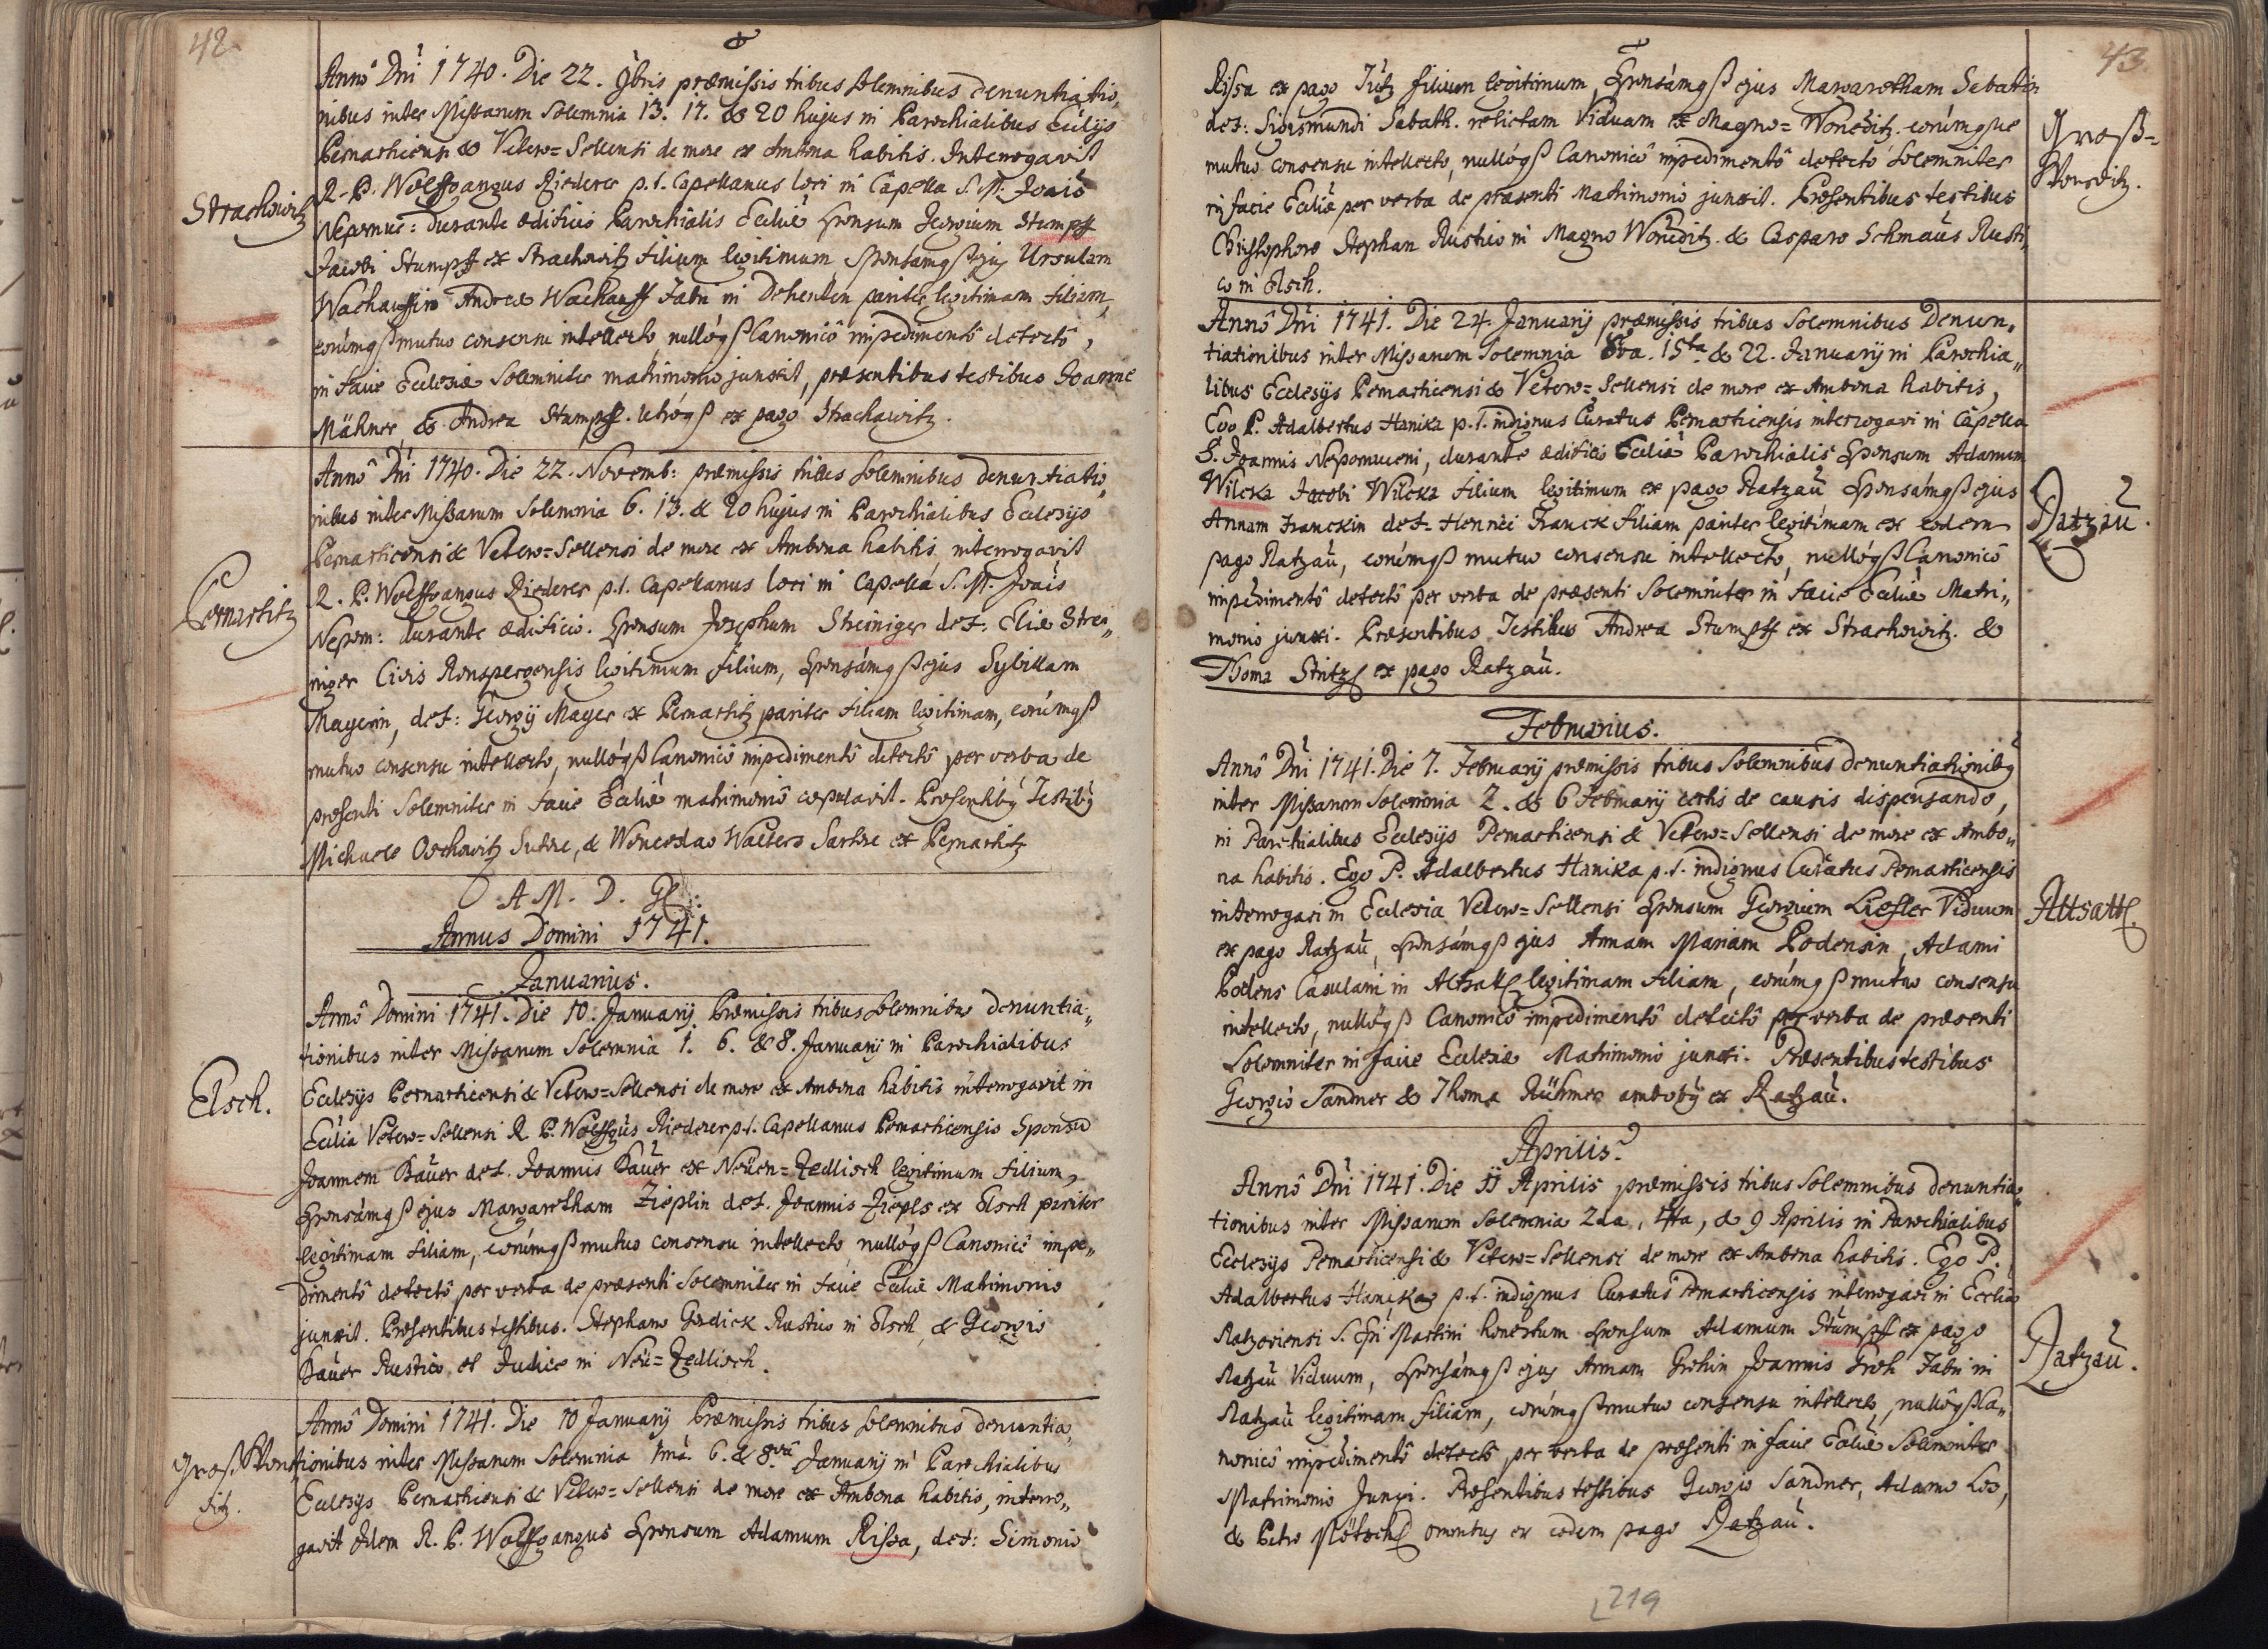 42.
Annô Dni 1740. Die 22. 9bris præmissis tribus solemnibus denuntiatio„
nibus inter Missarum Solemnia 13. 17. & 20 hujus in Parochialibus Eclijs
Pernarticensi & Vetero=Sellensi de more ex Ambona habitis. Interrogavit
R. P. Wolffgangus Riederer p. t. Capellanus loci in Capella S. M. Joais
Strachowitz
Nepomuc: durante ædificio Parochialis Ecliæ Sponsum Georgium Stumpff
Jacobi Stumpff ex Strachowitz filium legitimum Sponsámqß ejus Ursulam
Wachauffin Andreæ Wachauff Fabri in Dehenten pariter legitimam filiam,
eorúmqß mutuo consensu intellecto nullóqß Canonicô impedimentô detectô,
in facie Ecclesiæ Solemniter matrimonio junxit, præsentibus testibus Joanne
Mähner, & Andrea Stumpff. utróqß ex pago Strachawitz.
Annô Dni 1740. Die 22. Novemb: præmissis tribus Solemnibus denuntiatio„
nibus inter Missarum Solemnia 6. 13. & 20 hujus in Parochialibus Ecclesijs
Pernarticensi & Vetero=Sellensi de more ex Ambona habitis, interrogavit
Pernartitz
R. P. Wolffgangus Riederer p. t. Capellanus loci in Capellá S. M. Joais
Nepom: durante ædificio. Sponsum Josephum Streiniger def. Eliæ Strei„
niger Civis Ronspergensis legitimum filium, Sponsámqß ejus Sybillam
Mayerin, def: Georgij Mayer ex Pernartitz pariter filiam legitimam, eorúmqß
mutuo consensu intellecto, nullóqß Canonicô impedimentô detectô per verba de
præsenti Solemniter in facie Ecliæ matrimoniô copulavit. Præsentibq Testibq
Michaele Orchowitz Sutore, & Wenceslao Walters Sartore ex Pernartitz
O A M. D. Gl.:
Annus Domini 1741.
Januarius.
Annô Domini 1741. Die 10. Januarij Præmissis tribus solemnibus denuntia„
tionibus inter Missarum Solemnia 1. 6. & 8. Januarij in Parochialibus
Ecclesijs Pernarticensi & Vetero=Sellensi de more ex Ambona habitis interrogavit in
Elsch.
Eclia Vetero=Sellensi R. P. Wolffgus Riederer p. t. Capellanus Pernarticensis Sponsu
Joannem Bauer def. Joannis Bauer ex Neüen=Zedlisch legitimum filium,
Sponsámqß ejus Margaretham Zieplin def. Joannis Ziepls ex Elsch pariter
legitimam filiam, eorúmqß mutuo consensu intellecto, nullóqß Canonicô impe„
dimentô detectô per verba de præsenti Solemniter in facie Ecliæ Matrimonio
junxit. Præsentibus testibus. Stephano Gordick Rustico in Elsch, & Georgio
Bauer Rustico et Judice in Neü=Zedlisch.
Annô Domini 1741. Die 10 Januarij Præmissis tribus solemnibus denuntia„
Groß Won
ditz.
tionibus inter Missarum Solemnia 1má. 6. & 8vâ Januarij in Parochialibus
Ecclesijs Pernarticensi & Vetero=Sellensi de more ex Ambona habitis, interro„
gavit Idem R. P. Wolffgangus Sponsum Adamum Rissa, def: Simonis
43
Rissa ex pago Tutz filium legitimum, Sponsámqß ejus Margaretham Sabathin
def: Sigismundi Sabath. relictam Viduam ex Magno=Wonéditz. eorúmque
Groß=
Wonditz.
mutuo consensu intellecto, nullóqß Canonicô impedimentô detectô Solemniter
in facie Ecliæ per verba de præsenti Matrimonio junxit. Præsentibus testibus
Christophoro Stephan Rustico in Magno Wonéditz. & Casparo Schmaus Rusti„
co in Elsch.
Annô Dni 1741. Die 24. Januarij præmissis tribus Solemnibus Denun„
tiationibus inter Missarum Solemnia 8va. 15ta & 22. Januarij in Parochia„
libus Ecclesijs Pernarticensi & Vetero=Sellensi de more ex Ambona habitis,
Ego P. Adalbertus Hanika p. t. indignus Curatus Pernarticensis interrogavi in Capella
S. Joannis Nepomuceni, durante ædificio Ecliæ Parochialis Sponsum Adamum
Wilcka Jacobi Wilcka filium legitimum ex pago Ratzau Sponsámqß ejus
Ratzau.
Annam Franckin def. Henrici Franck filiam pariter legitimam ex eodem
pago Ratzau, eorúmqß mutuo consensu intellecto, nullóqß Canonicô
impedimentô detectô per verba de præsenti Solemniter in facie Ecliæ Matri„
monio junxi. Præsentibus Testibus Andrea Stumpff ex Strachowitz. &
Thoma Stritzl ex pago Ratzau.
Februarius.
Annô Dni 1741. Die 7. Februarij præmissis tribus Solemnibus denuntiationibq
inter Missarum Solemnia 2. & 6 Februarij certis de causis dispensando,
in Parochialibus Ecclesijs Pernarticensi & Vetero=Sellensi de more ex Ambo„
na habitis. Ego P. Adalbertus Hanika p. t. indignus Curatus Pernarticensis
interrogavi in Ecclesia Vetero=Sellensi Sponsum Georgium Liesler Viduum
Altsattl.
ex pago Ratzau, Sponsámqß ejus Annam Mariam Podensin, Adami
Podens Casulani in Altsattl legitimam filiam, eorúmqß mutuo consensu
intellecto, nullóqß Canonicô impedimentô detectô per verba de præsenti
Solemniter in facie Ecclesiæ Matrimonio junxi. Præsentibus testibus
Georgio Sandner & Thoma Rühmer ambobq ex Ratzau.
Aprilis.
Annô Dni 1741. Die 11 Aprilis præmissis tribus Solemnibus denuntia„
tionibus inter Missarum Solemnia 2da, 4ta, & 9 Aprilis in Parochialibus
Ecclesijs Pernarticensi & Vetero=Sellensi de more ex Ambona habitis. Ego P.
Adalbertus Hanika p. t. indignus Curatus Pernarticensis interrogavi in Ecclia
Ratzoviensi S. Epi Martini honestum Sponsum Adamum Stumpff ex pago
Ratzau.
Ratzau Viduum, Sponsámqß ejus Annam Grohin Joannis Groh Fabri in
Ratzau legitimam filiam, eorúmqß mutuo consensu intellecto, nullóqß Ca„
nonicô impedimentô detectô per verba de præsenti in facie Ecliæ Solemniter
Matrimonio Junxi. Præsentibus testibus Georgio Sandner, Adamo Los,
& Petro Plötschl omnibus ex eodem pago Ratzau.
219